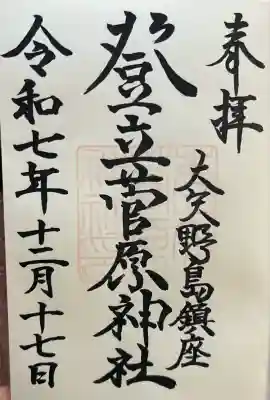 奉拝
大矢野島鎮座
登立菅原神社
令和七年十二月十七日